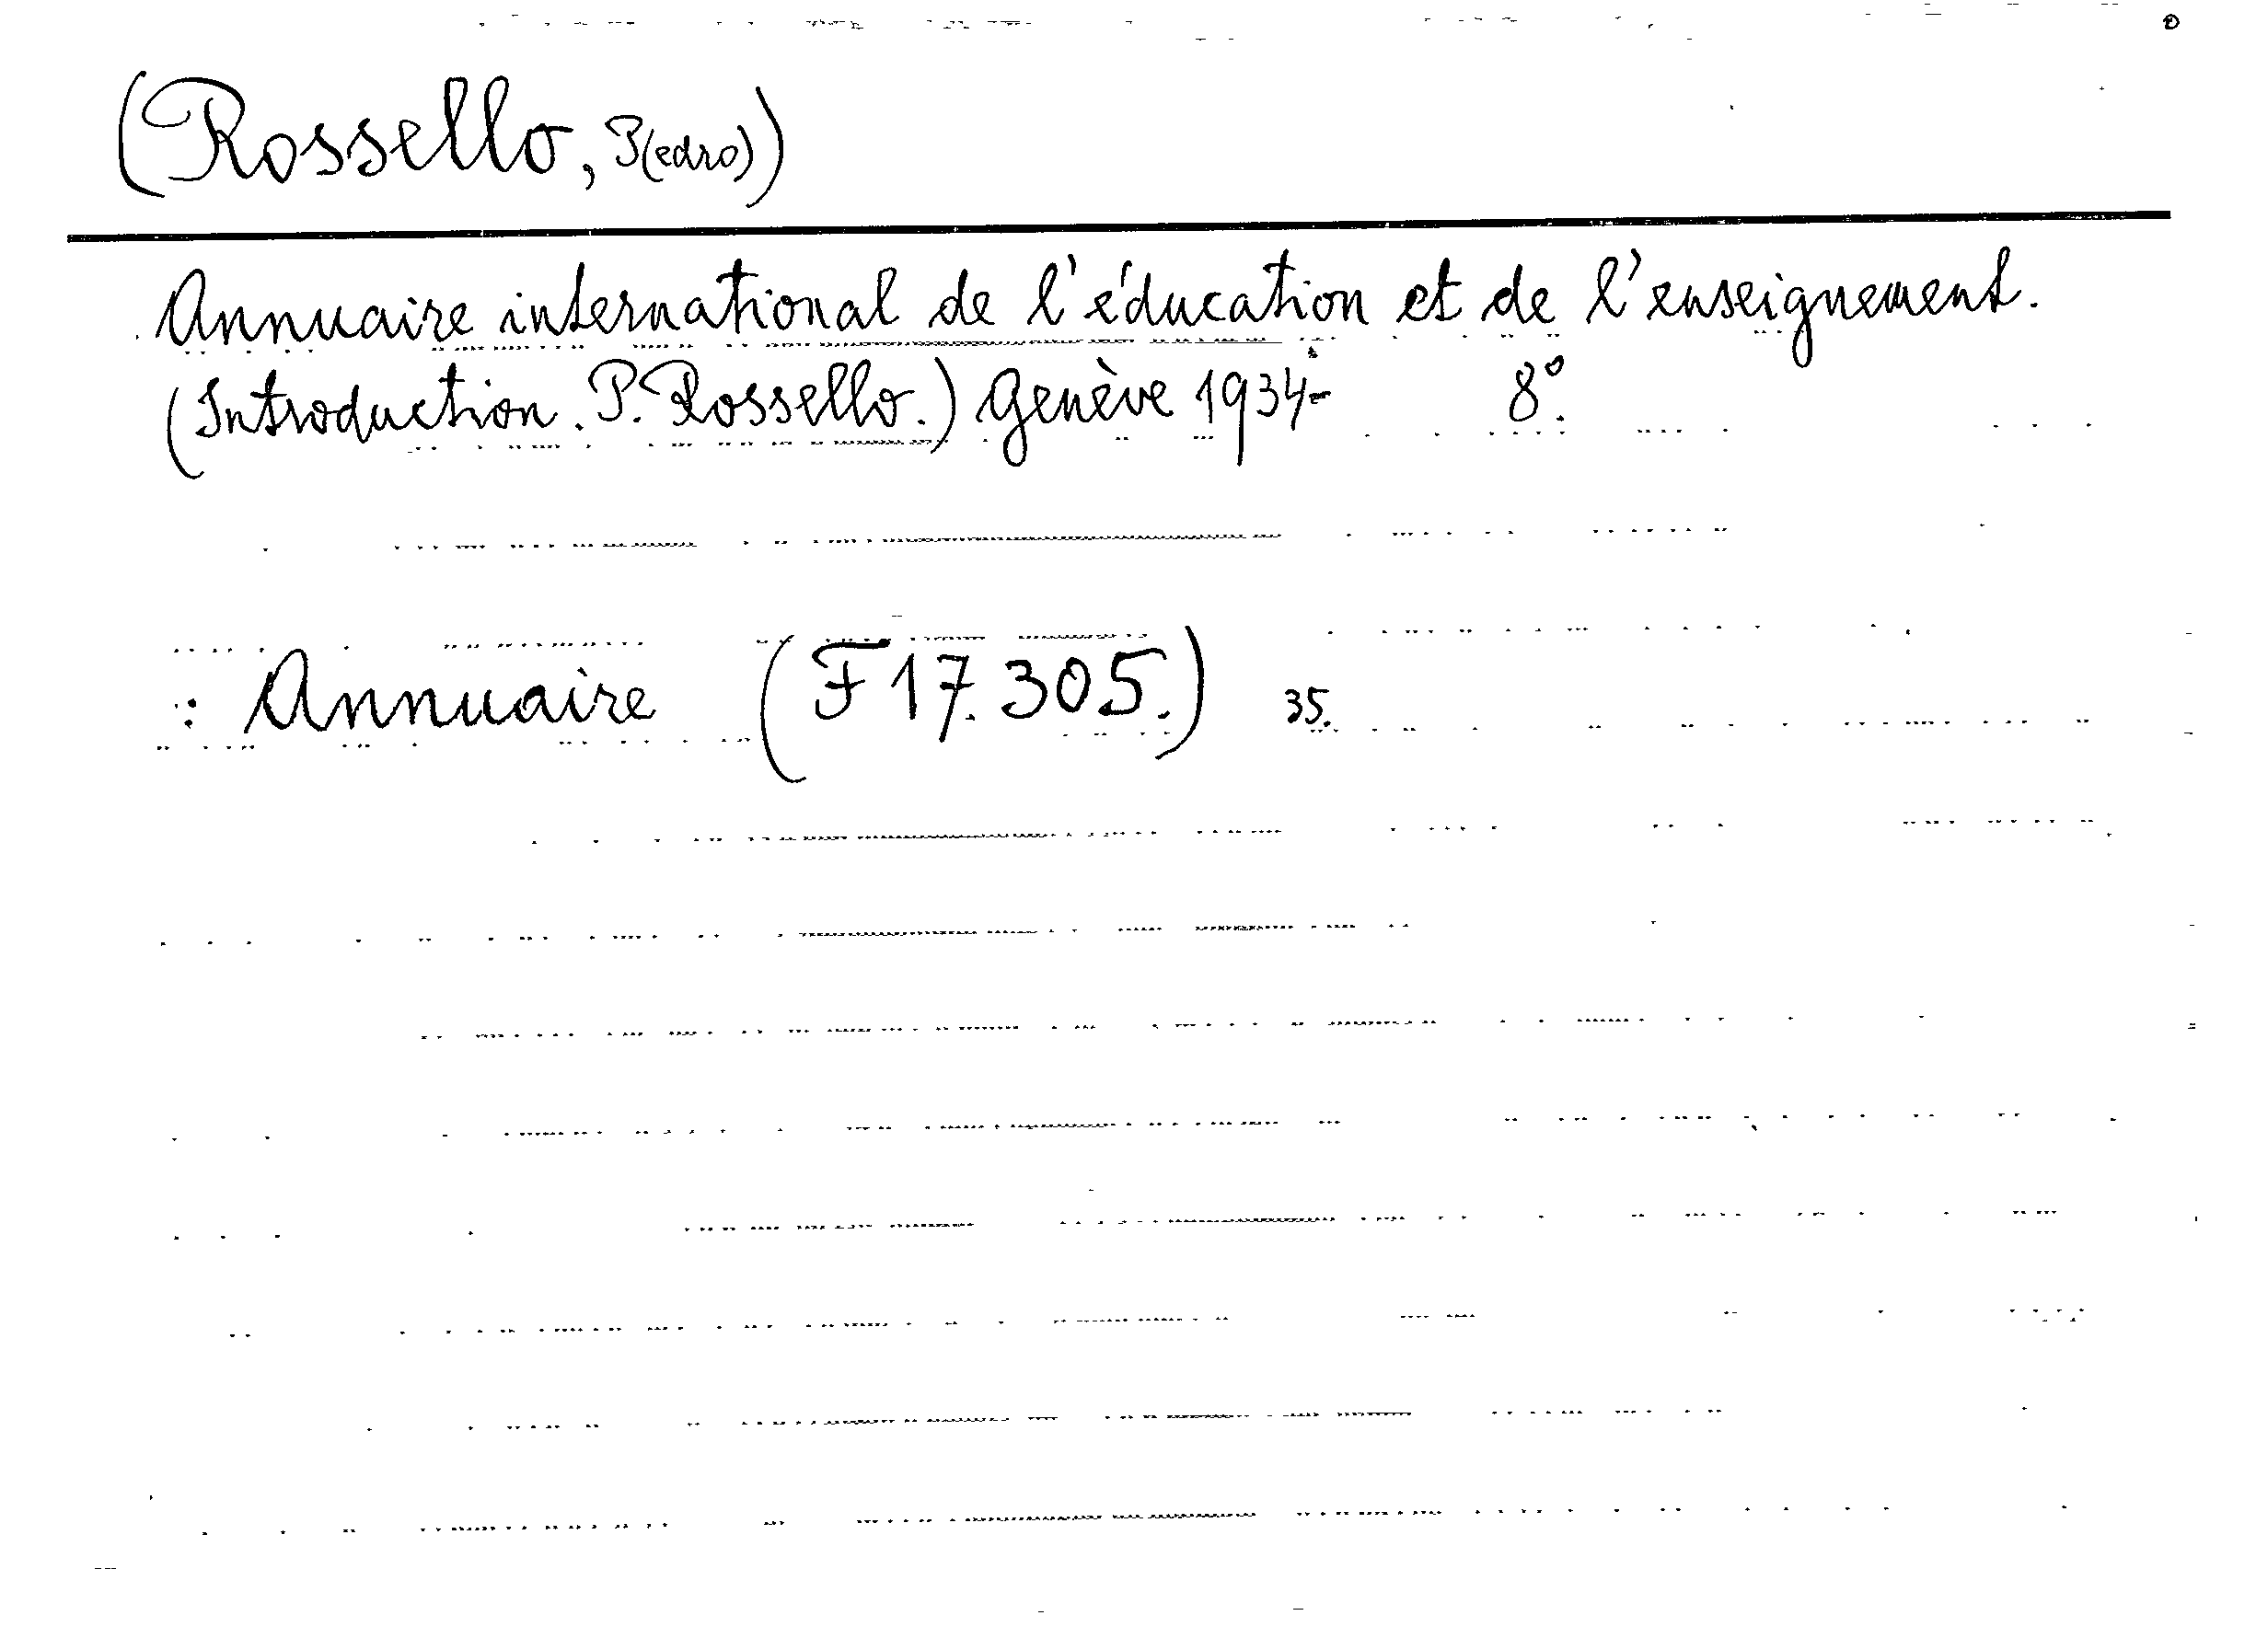 (Rossello, P(edro))
Annuaire international de l'éducation et de l'enseignement.
(Introduction. P. Rossello.) Genève 1934- 8°.
: Annuaire (F 17.305.) 35.